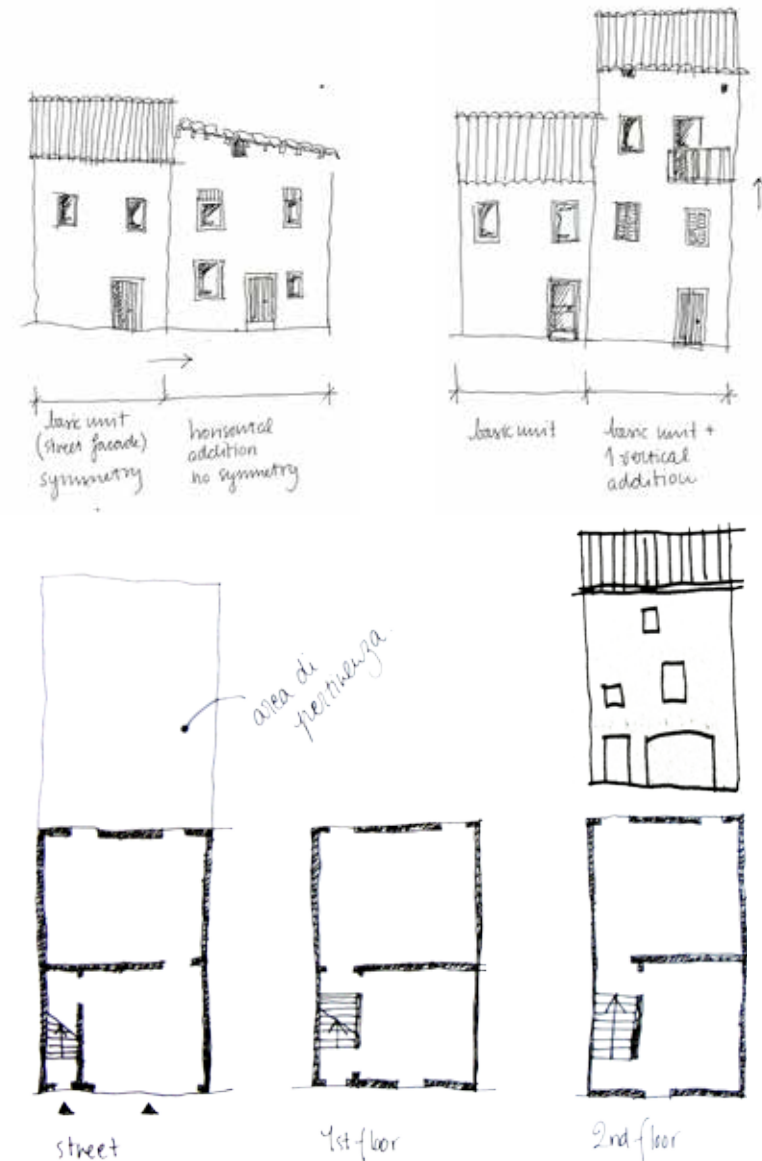 basic unit
(street facade)
symmetry
horisontal
addition
no symmetry
basic unit
basic unit +
1 vertical
addition
area di
pertinenza
street
1st floor
2nd floor